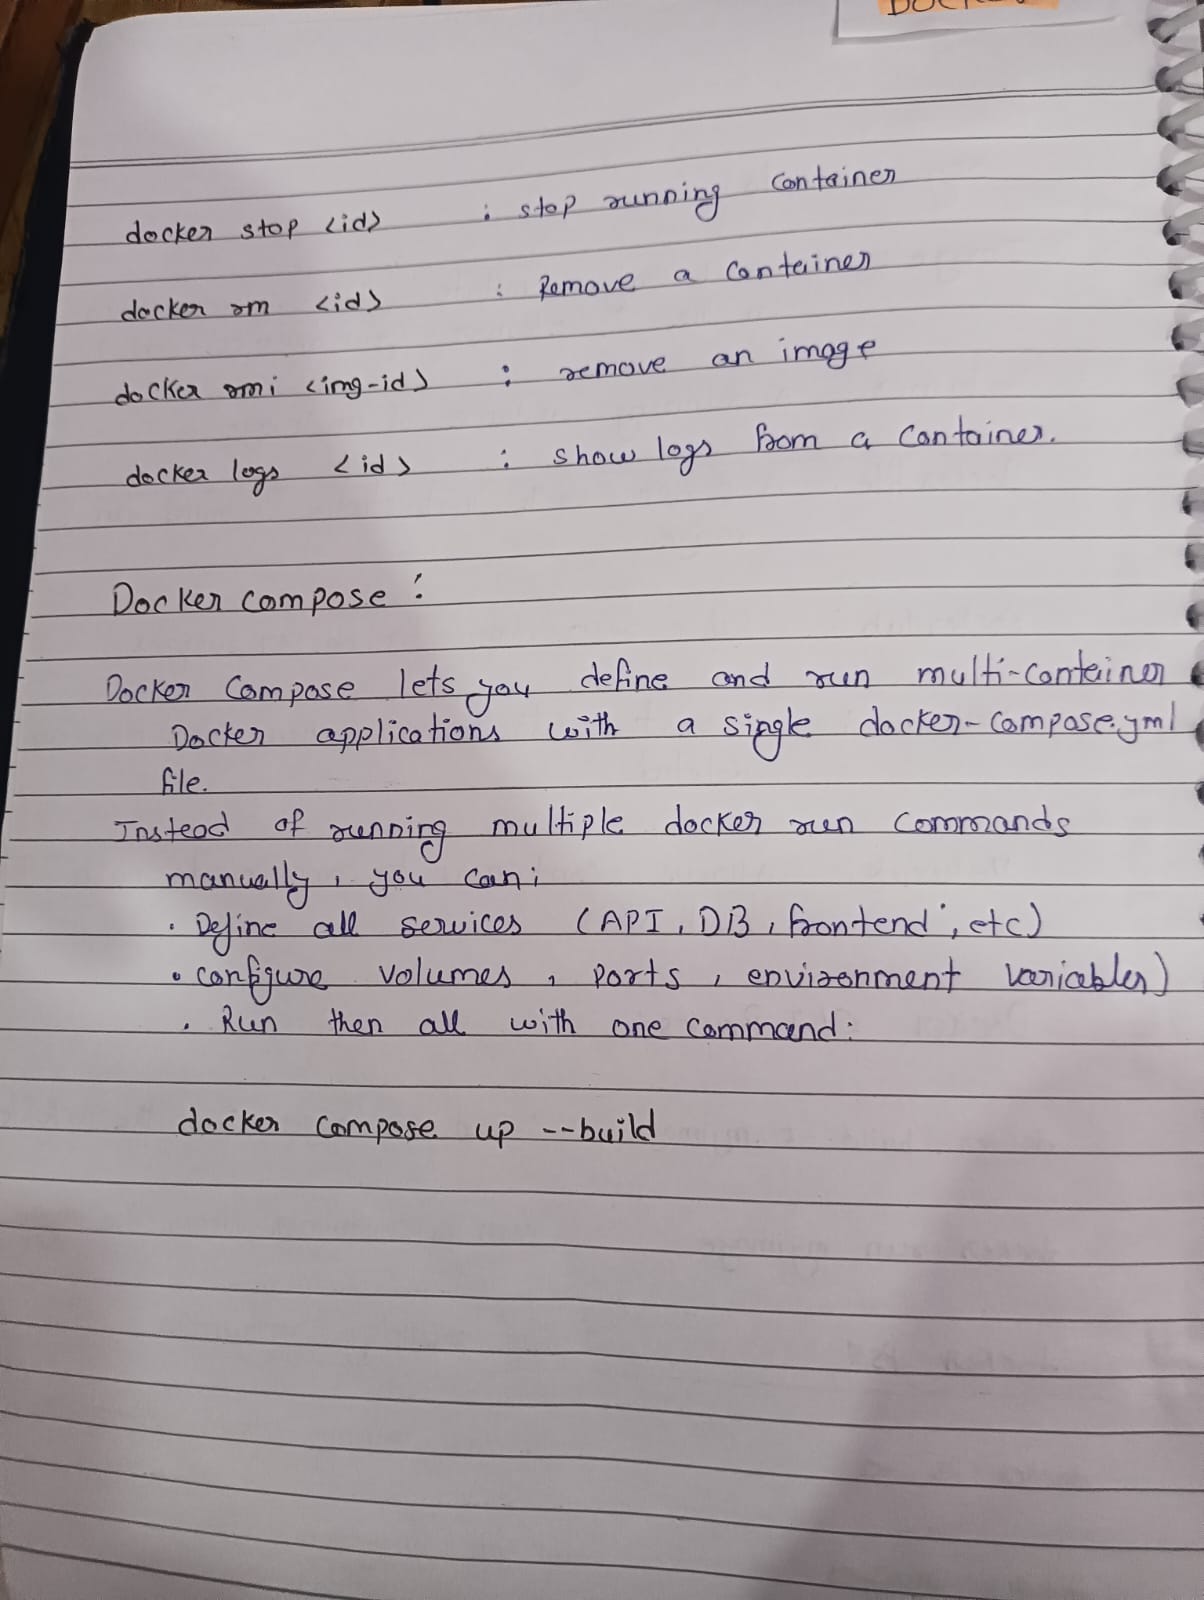 docker stop <id> : stop running container
docker rm <id> : Remove a container
docker rmi <img-id> : remove an image
docker logs <id> : show logs from a container.
Docker compose :
Docker Compose lets you define and run multi-container
Docker applications with a single docker-compose.yml
file.
Instead of running multiple docker run commands
manually, you can;
. Define all services (API, DB, frontend, etc)
• configure volumes, ports, environment variables)
. Run then all with one command:
docker compose up --build